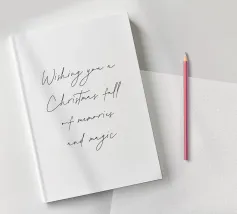 Wishing you a
Christmas full
of memories
and magic